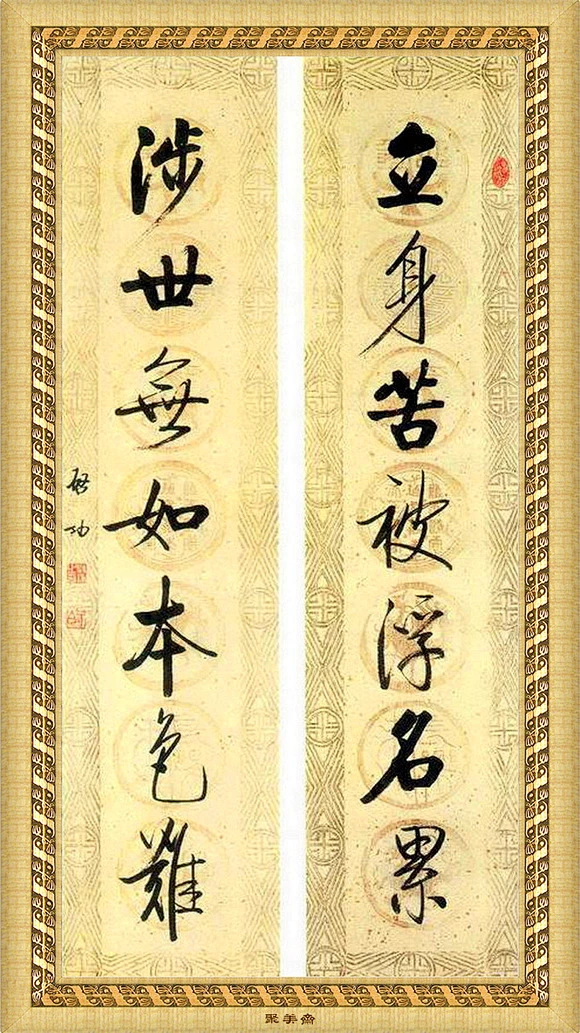 立身苦被浮名累
涉世無如本色難
啟功
聚美齋